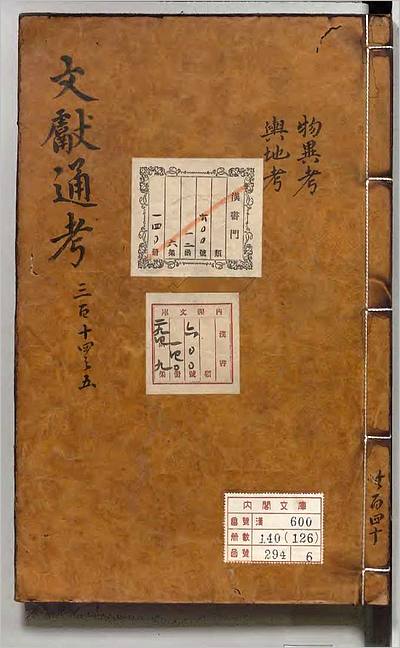 物異考
輿地考
文獻通考
三百十四之五
漢書門
類
六〇〇號
一二函
六架
一四〇冊
內閣文庫
漢書
六〇〇號
類
一四〇冊
函
架
內閣文庫
番號 漢 600
冊數 140(126)
函號 294 6
共百四十